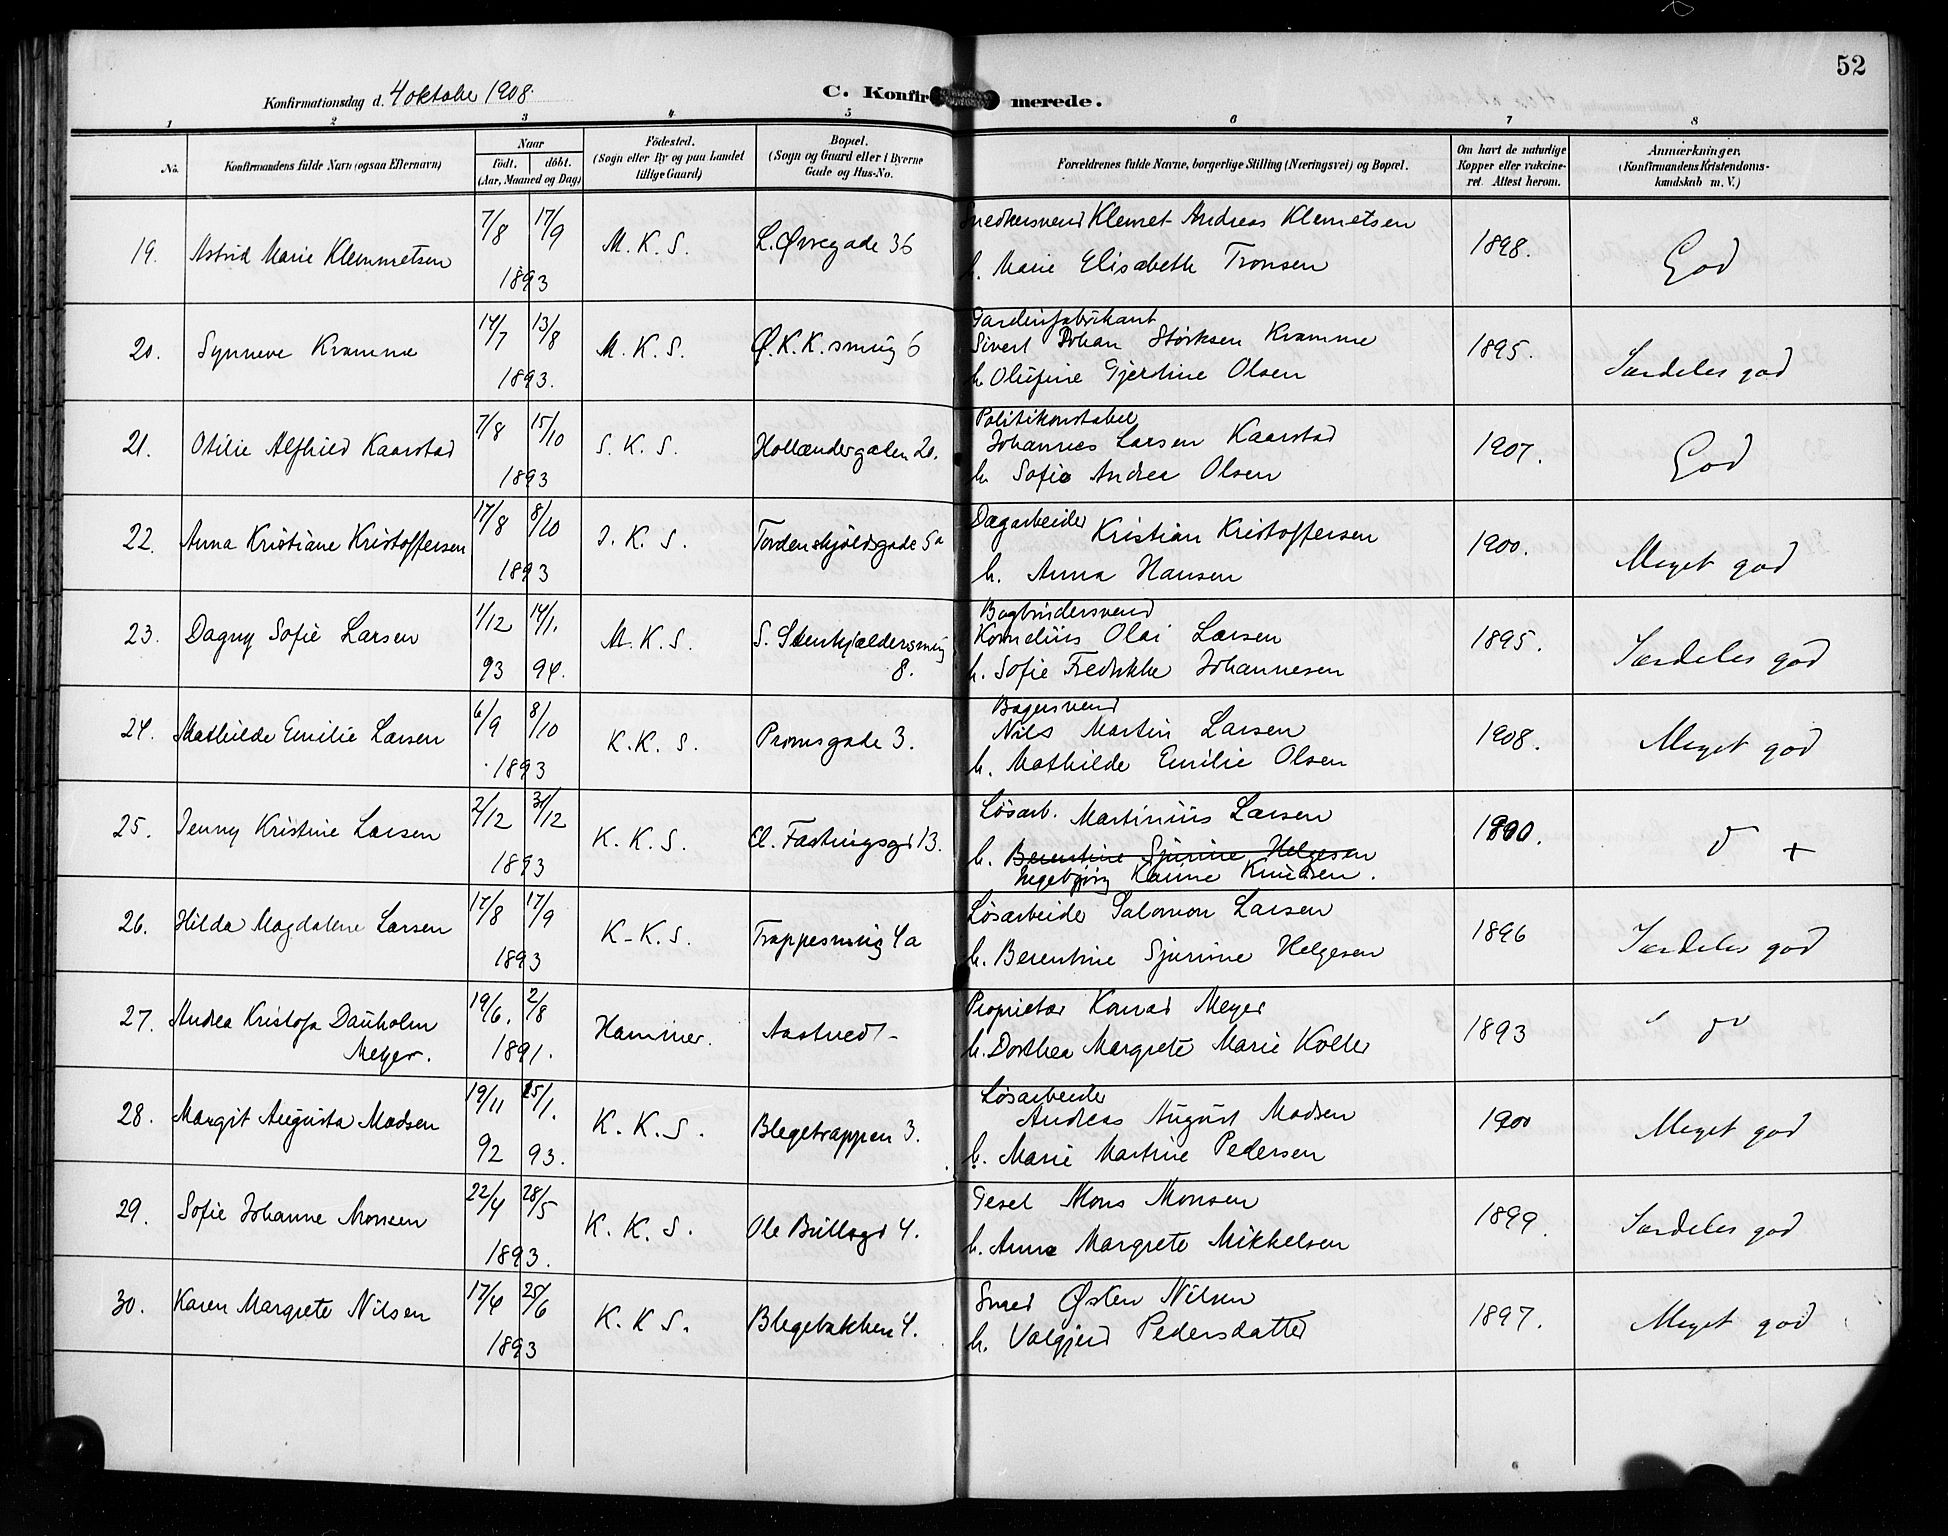 52
Konfirmationsdag d. 4 oktober 1908.
C. Konfirmerede.
1 2 3 4 5 6 7 8
No.
Konfirmandens fulde Navn (ogsaa Efternavn)
Naar
født. døbt.
(Aar, Maaned og Dag)
Fødested.
(Sogn eller By og paa Landet
tillige Gaard)
Bopæl.
(Sogn og Gaard eller i Byerne
Gade og Hus-No.
Forældrenes fulde Navne, borgerlige Stilling (Næringsvei) og Bopæl.
Om havt de naturlige
Kopper eller vakcine-
ret. Attest herom.
Anmærkninger,
(Konfirmandens Kristendoms-
kundskab m. V.)
19. Astrid Marie Klemmetsen 7/8 17/9 1893 M. K. S. L. Øvregade 36
Snedkersvend Klemet Andreas Klemetsen
h. Marie Elisabeth Tronsen
1898. God
20. Synneve Kramme 14/7 13/8 1893. M. K. S. Ø. K. K. smug 6
Gardinfabrikant
Sivert Johan Størksen Kramme
h. Olufine Gjertine Olsen
1895. Særdeles god
21. Otilie Alfhild Kaarstad 7/8 15/10 1893 S. K. S. Hollændergaden 20.
Politikonstabel
Johannes Larsen Kaarstad
h. Sofie Andrea Olsen
1907. God
22. Anna Kristiane Kristoffersen 17/8 8/10 1893 J. K. S. Tordenskjoldsgade 5a
Dagarbeider
Kristian Kristoffersen
h. Anna Hansen
1900. Meget god
23. Dagny Sofie Larsen 1/12 14/1. 93 94. M. K. S. S. Stenkjældersmug
8.
Bogbindersvend
Kornelius Olai Larsen
h. Sofie Fredrikke Johannesen
1895. Særdeles god
24. Mathilde Emilie Larsen 6/9 8/10 1893 K. K. S. Promsgade 3.
Bagersvend
Nils Martin Larsen
h. Mathilde Emilie Olsen
1908. Meget god
25. Jenny Kristine Larsen 2/12 31/12 1893 K. K. S. Cl. Fastingsgd 13.
Løsarb. Martinius Larsen
h. Berentine Sjurine Helgesen
Ingebjørg Karine Knudsen.
1900. d +
26. Hilda Magdalene Larsen 17/8 17/9 1893 K. K. S. Trappesmug 4a
Løsarbeide Salomon Larsen
h. Berentine Sjurine Helgesen
1896 Særdeles god
27. Andrea Kristofa Dauholm
Meyer. 19/6. 2/8 1891. Hammer. Aastvedt
Proprietær Konrad Meyer
h. Dorthea Margrete Marie Koller
1893
28. Margit Augusta Madsen 19/11 15/1. 92 93. K. K. S. Blegetrappen 3.
Løsarbeide
Andreas August Madsen
h. Marie Martine Pedersen
1900 Meget god
29. Sofie Johanne Monsen 22/4 28/5 1893. K. K. S. Ole Bullsgd 4.
Gesel Mons Monsen
h. Anna Margrete Mikkelsen
1899. Særdeles god
30. Karen Margrete Nilsen 17/4 25/6 1893 K. K S. Blegebakken 4.
Smed Østen Nilsen
h. Valgjerd Pedersdatter
1897. Meget god